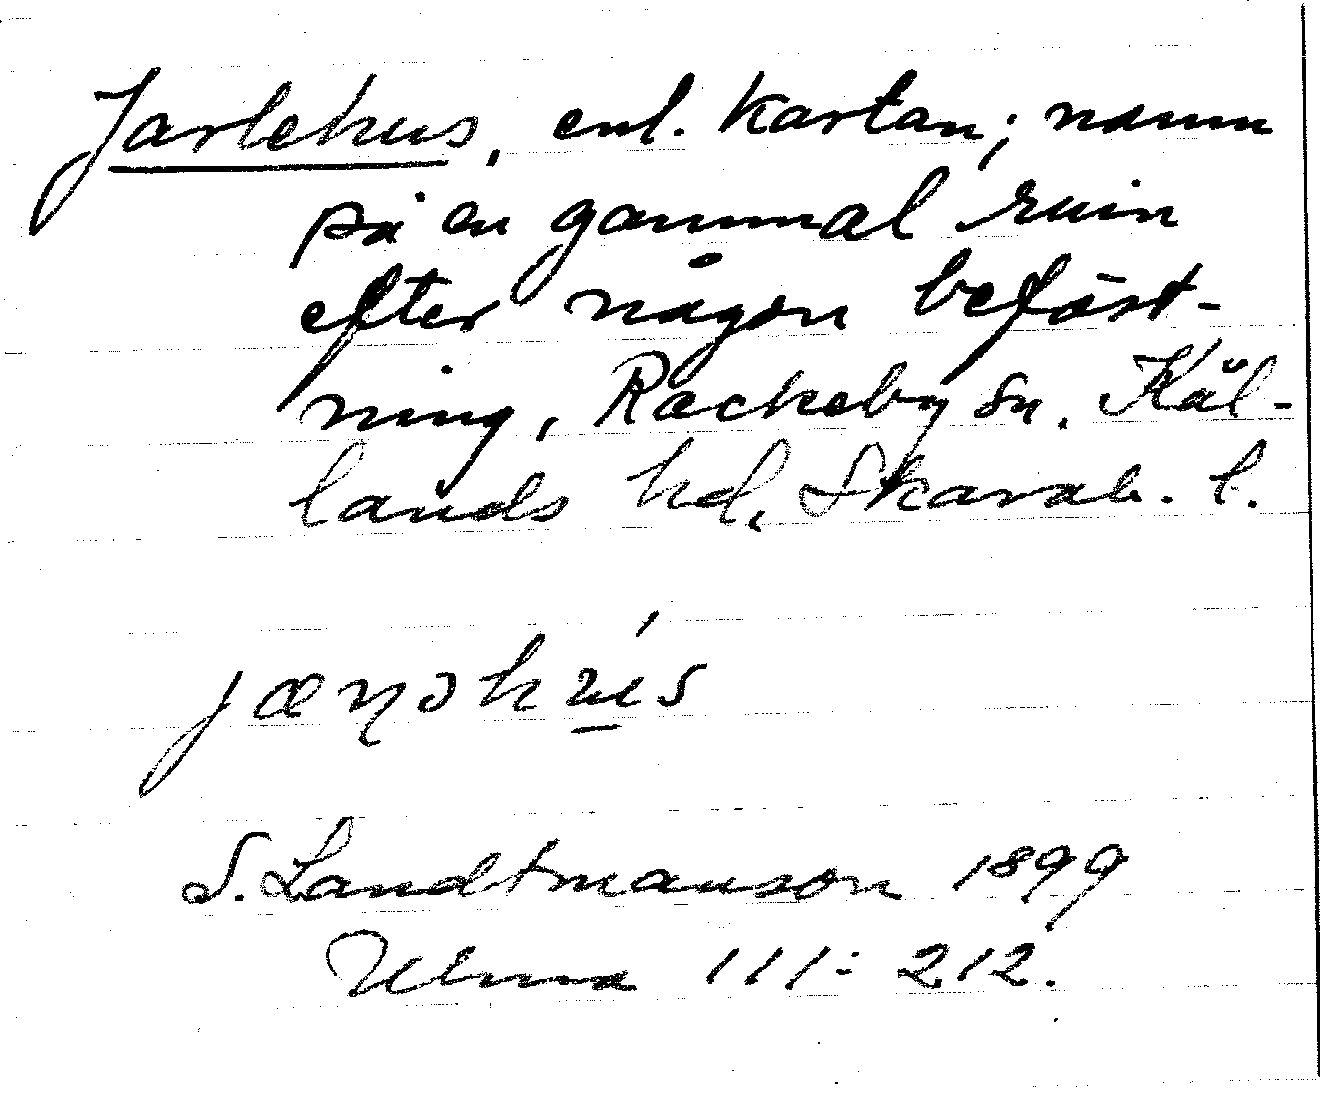 Jarlehus, enl. kartan; namn
på en gammal ruin
efter någon befäst-
ning, Rackeby sn. Kål-
lands hd, Skarab. l.
S. Landtmanson 1899
Ulma 111:212.